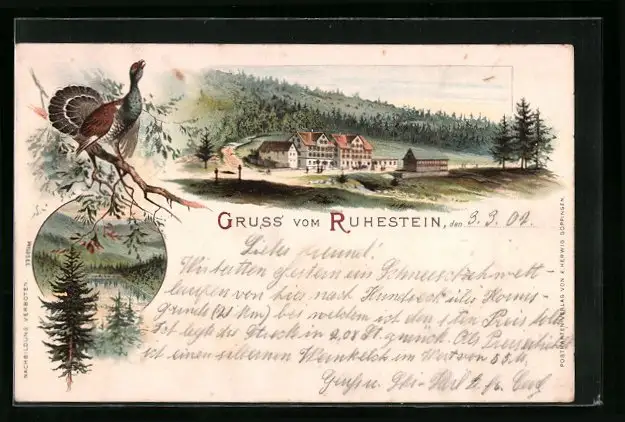 GRUSS VOM RUHESTEIN, den 3.3.02.
Lieber Freund!
Wir hatten gestern ein Schneeschuhwett-
laufen von hier nach Hundseck über Hornis-
grinde (21 km) bei welchem ich den 1ten Preis
Ich legte die Strecke in 2,08 St. zurück. Als Preis erhielt
ich einen silbernen Weinkelch im Wert von 55 M.
Gruss u. Ski-Heil
NACHBILDUNG VERBOTEN
POSTKARTEN-VERLAG VON E. HERWIG GÖPPINGEN.